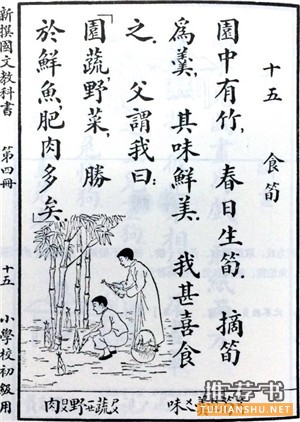 十五 食筍
園中有竹，春日生筍．摘筍
爲羹，其味鮮美．我甚喜食
之．父謂我曰：
「園蔬，野菜，勝
於鮮魚，肥肉多矣．」
新撰國文教科書 第四冊 十五 小學校初級用
味
蔬ㄕㄨ野ㄧㄝ肉ㄖㄡ
推荐书
WWW.TUIJIANSHU.NET